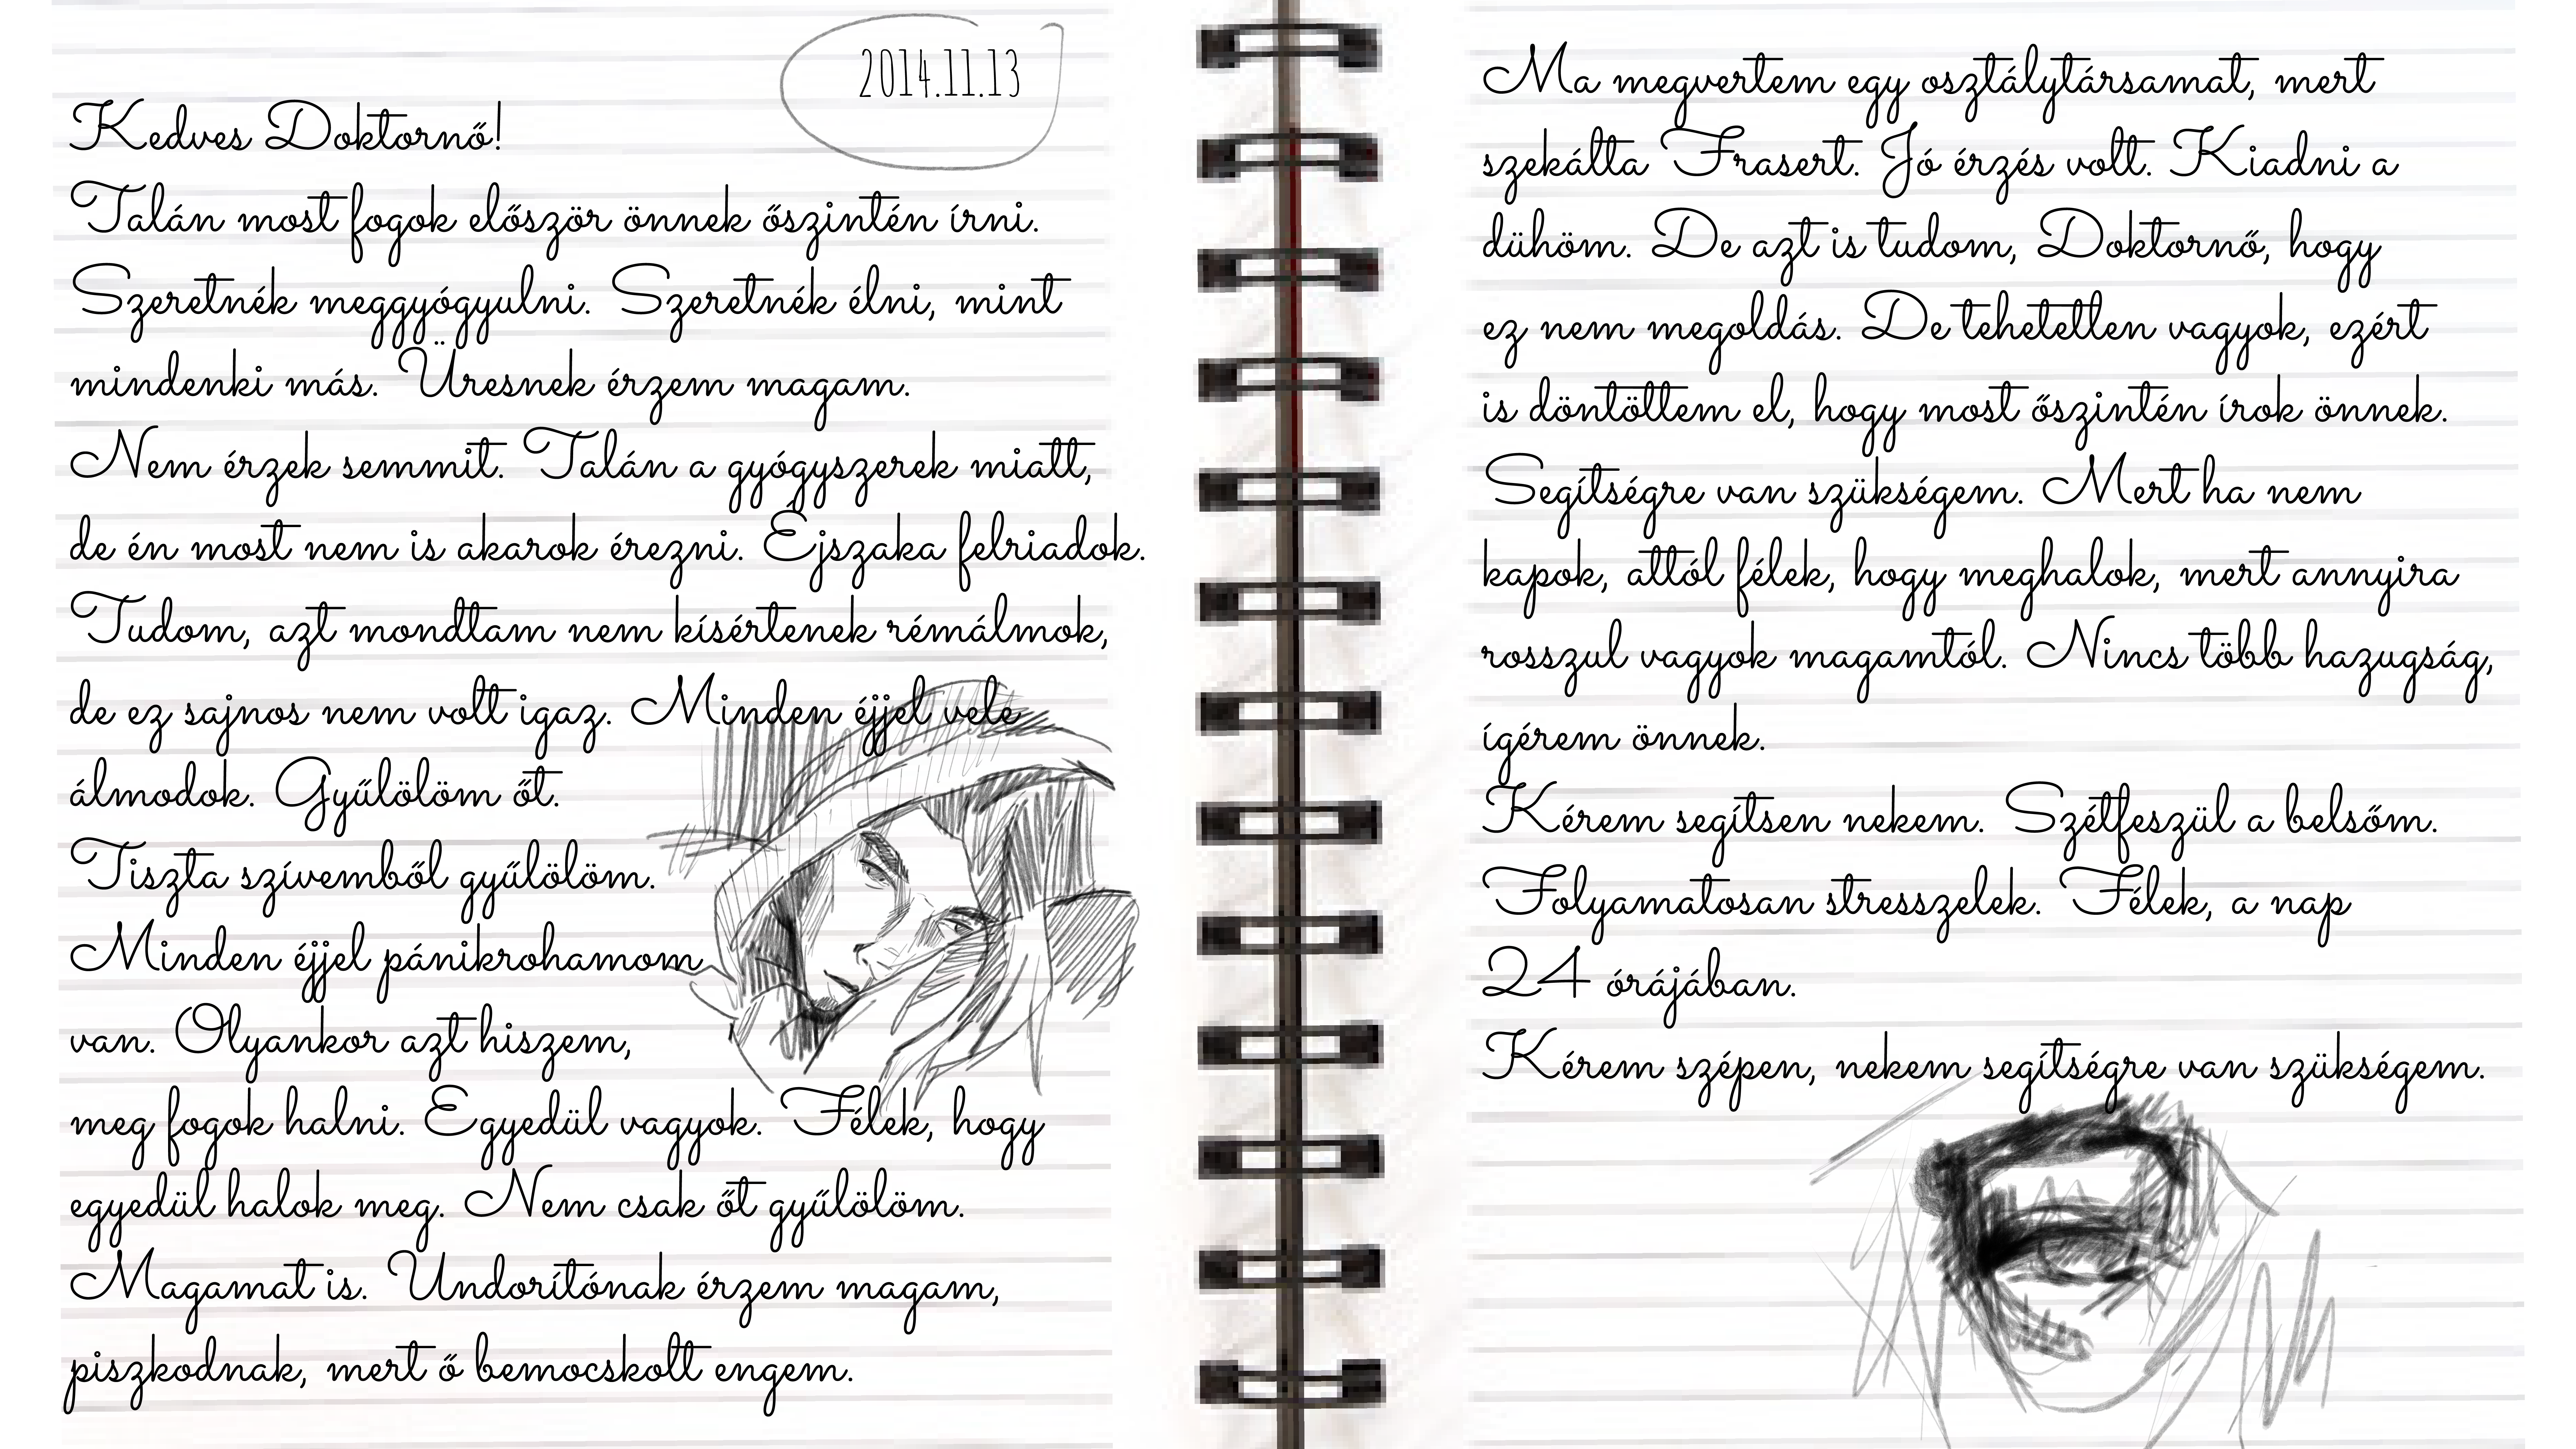 2014.11.13
Kedves Doktornő!
Talán most fogok először önnek őszintén írni.
Szeretnék meggyógyulni. Szeretnék élni, mint
mindenki más. Üresnek érzem magam.
Nem érzek semmit. Talán a gyógyszerek miatt,
de én most nem is akarok érezni. Éjszaka felriadok.
Tudom, azt mondtam nem kísértenek rémálmok,
de ez sajnos nem volt igaz. Minden éjjel vele
álmodok. Gyűlölöm őt.
Tiszta szívemből gyűlölöm.
Minden éjjel pánikrohamom
van. Olyankor azt hiszem,
meg fogok halni. Egyedül vagyok. Félek, hogy
egyedül halok meg. Nem csak őt gyűlölöm.
Magamat is. Undorítónak érzem magam,
piszkodnak, mert ő bemocskolt engem.
Ma megvertem egy osztálytársamat, mert
szekálta Frasert. Jó érzés volt. Kiadni a
dühöm. De azt is tudom, Doktornő, hogy
ez nem megoldás. De tehetetlen vagyok, ezért
is döntöttem el, hogy most őszintén írok önnek.
Segítségre van szükségem. Mert ha nem
kapok, attól félek, hogy meghalok, mert annyira
rosszul vagyok magamtól. Nincs több hazugság,
ígérem önnek.
Kérem segítsen nekem. Szétfeszül a belsőm.
Folyamatosan stresszelek. Félek, a nap
24 órájában.
Kérem szépen, nekem segítségre van szükségem.